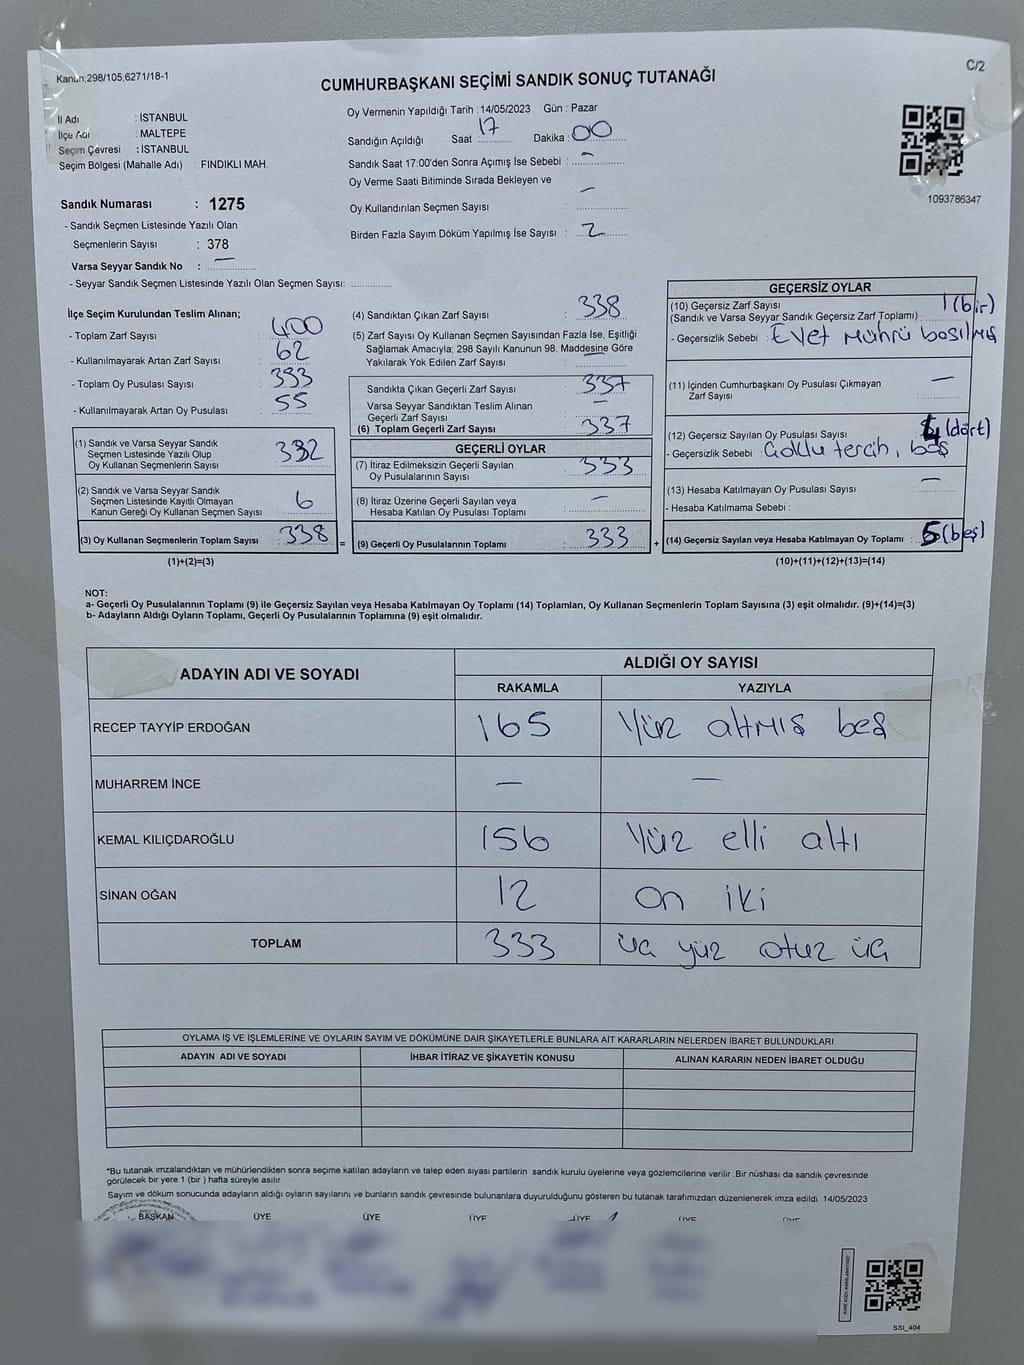 Kanun;298/105;6271/18-1
C/2
CUMHURBAŞKANI SEÇİMİ SANDIK SONUÇ TUTANAĞI
İl Adı : İSTANBUL
İlçe Adı : MALTEPE
Seçim Çevresi : İSTANBUL
Seçim Bölgesi (Mahalle Adı) : FINDIKLI MAH.
Sandık Numarası : 1275
- Sandık Seçmen Listesinde Yazılı Olan
Seçmenlerin Sayısı : 378
Varsa Seyyar Sandık No : —
- Seyyar Sandık Seçmen Listesinde Yazılı Olan Seçmen Sayısı:
Oy Vermenin Yapıldığı Tarih : 14/05/2023 Gün : Pazar
Sandığın Açıldığı Saat 17 Dakika : 00
Sandık Saat 17:00'den Sonra Açımış İse Sebebi : —
Oy Verme Saati Bitiminde Sırada Bekleyen ve
Oy Kullandırılan Seçmen Sayısı : —
Birden Fazla Sayım Döküm Yapılmış İse Sayısı : 2
1093786347
İlçe Seçim Kurulundan Teslim Alınan;
- Toplam Zarf Sayısı : 400
- Kullanılmayarak Artan Zarf Sayısı : 62
- Toplam Oy Pusulası Sayısı : 393
- Kullanılmayarak Artan Oy Pusulası : 55
(1) Sandık ve Varsa Seyyar Sandık
Seçmen Listesinde Yazılı Olup
Oy Kullanan Seçmenlerin Sayısı : 332
(2) Sandık ve Varsa Seyyar Sandık
Seçmen Listesinde Kayıtlı Olmayan
Kanun Gereği Oy Kullanan Seçmen Sayısı : 6
(3) Oy Kullanan Seçmenlerin Toplam Sayısı : 338 =
(1)+(2)=(3)
(4) Sandıktan Çıkan Zarf Sayısı : 338
(5) Zarf Sayısı Oy Kullanan Seçmen Sayısından Fazla İse, Eşitliği
Sağlamak Amacıyla; 298 Sayılı Kanunun 98. Maddesine Göre
Yakılarak Yok Edilen Zarf Sayısı : —
Sandıkta Çıkan Geçerli Zarf Sayısı : 337
Varsa Seyyar Sandıktan Teslim Alınan
Geçerli Zarf Sayısı : —
(6) Toplam Geçerli Zarf Sayısı : 337
GEÇERLİ OYLAR
(7) İtiraz Edilmeksizin Geçerli Sayılan
Oy Pusulalarının Sayısı : 333
(8) İtiraz Üzerine Geçerli Sayılan veya
Hesaba Katılan Oy Pusulası Toplamı : —
(9) Geçerli Oy Pusulalarının Toplamı : 333 +
GEÇERSİZ OYLAR
(10) Geçersiz Zarf Sayısı
(Sandık ve Varsa Seyyar Sandık Geçersiz Zarf Toplamı) : 1(bir)
- Geçersizlik Sebebi : Evet Mührü basılmış
(11) İçinden Cumhurbaşkanı Oy Pusulası Çıkmayan
Zarf Sayısı : —
(12) Geçersiz Sayılan Oy Pusulası Sayısı : 4(dört)
- Geçersizlik Sebebi : Çoklu tercih, boş
(13) Hesaba Katılmayan Oy Pusulası Sayısı : —
- Hesaba Katılmama Sebebi :
(14) Geçersiz Sayılan veya Hesaba Katılmayan Oy Toplamı : 5(beş)
(10)+(11)+(12)+(13)=(14)
NOT:
a- Geçerli Oy Pusulalarının Toplamı (9) ile Geçersiz Sayılan veya Hesaba Katılmayan Oy Toplamı (14) Toplamları, Oy Kullanan Seçmenlerin Toplam Sayısına (3) eşit olmalıdır. (9)+(14)=(3)
b- Adayların Aldığı Oyların Toplamı, Geçerli Oy Pusulalarının Toplamına (9) eşit olmalıdır.
ADAYIN ADI VE SOYADI ALDIĞI OY SAYISI
RAKAMLA YAZIYLA
RECEP TAYYİP ERDOĞAN 165 Yüz altmış beş
MUHARREM İNCE — —
KEMAL KILIÇDAROĞLU 156 Yüz elli altı
SİNAN OĞAN 12 on iki
TOPLAM 333 üç yüz otuz üç
OYLAMA İŞ VE İŞLEMLERİNE VE OYLARIN SAYIM VE DÖKÜMÜNE DAİR ŞİKAYETLERLE BUNLARA AİT KARARLARIN NELERDEN İBARET BULUNDUKLARI
ADAYIN ADI VE SOYADI İHBAR İTİRAZ VE ŞİKAYETİN KONUSU ALINAN KARARIN NEDEN İBARET OLDUĞU
*Bu tutanak imzalandıktan ve mühürlendikten sonra seçime katılan adayların ve talep eden siyasi partilerin sandık kurulu üyelerine veya gözlemcilerine verilir .Bir nüshası da sandık çevresinde
görülecek bir yere 1 (bir ) hafta süreyle asılır.
Sayım ve döküm sonucunda adayların aldığı oyların sayılarını ve bunların sandık çevresinde bulunanlara duyurulduğunu gösteren bu tutanak tarafımızdan düzenlenerek imza edildi. 14/05/2023
BAŞKAN ÜYE ÜYE ÜYE ÜYE ÜYE ÜYE
SSI_404